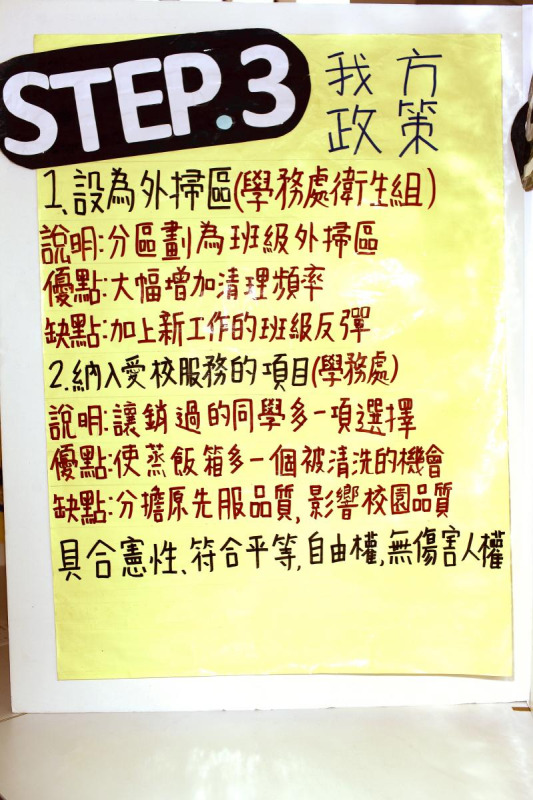 STEP.3
我方
政策
1、設為外掃區(學務處衛生組)
說明:分區劃為班級外掃區
優點:大幅增加清理頻率
缺點:加上新工作的班級反彈
2.納入愛校服務的項目(學務處)
說明:讓銷過的同學多一項選擇
優點:使蒸飯箱多一個被清洗的機會
缺點:分擔原先服品質,影響校園品質
具合憲性、符合平等,自由權,無傷害人權